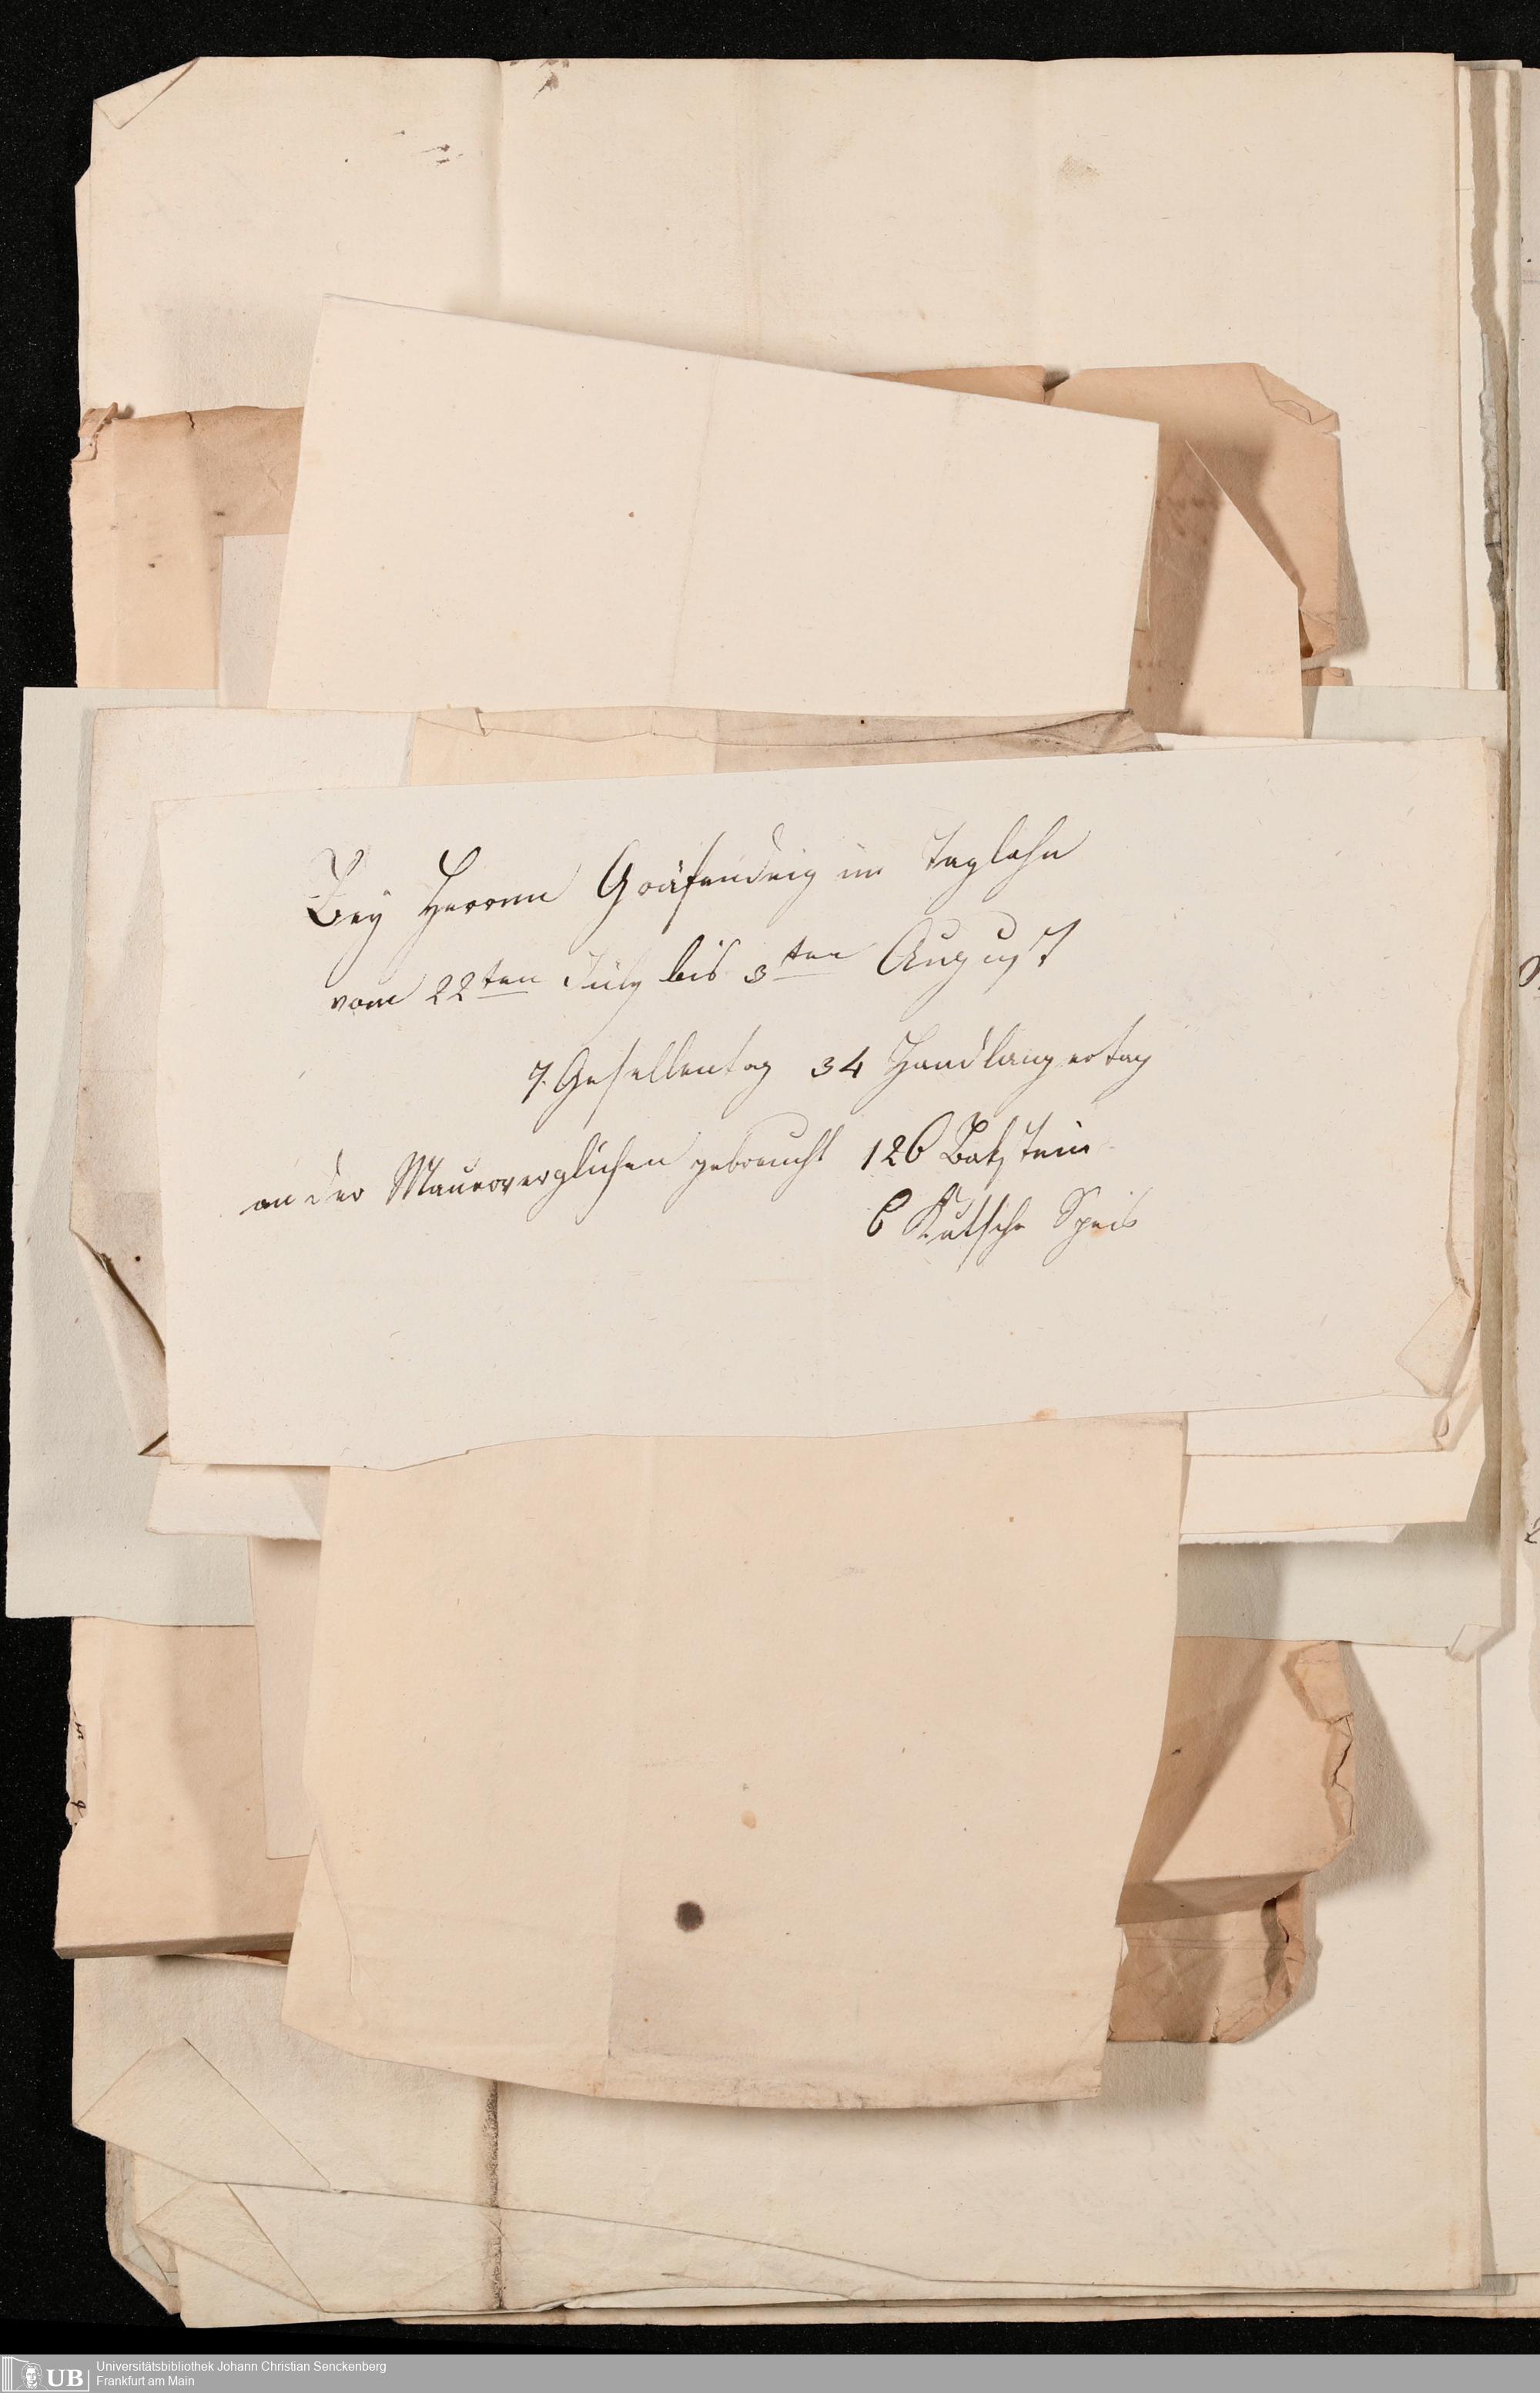 Bey Herrn Gräfendeig im Taglohn
vom 22ten July bis 3ten August
7. Gesellentag 34 Handlangertag
an der Mauer verglichen gebraucht 126 Bakstein
6 Kutsche Speis
Universitätsbibliothek Johann Christian Senckenberg
Frankfurt am Main
UB